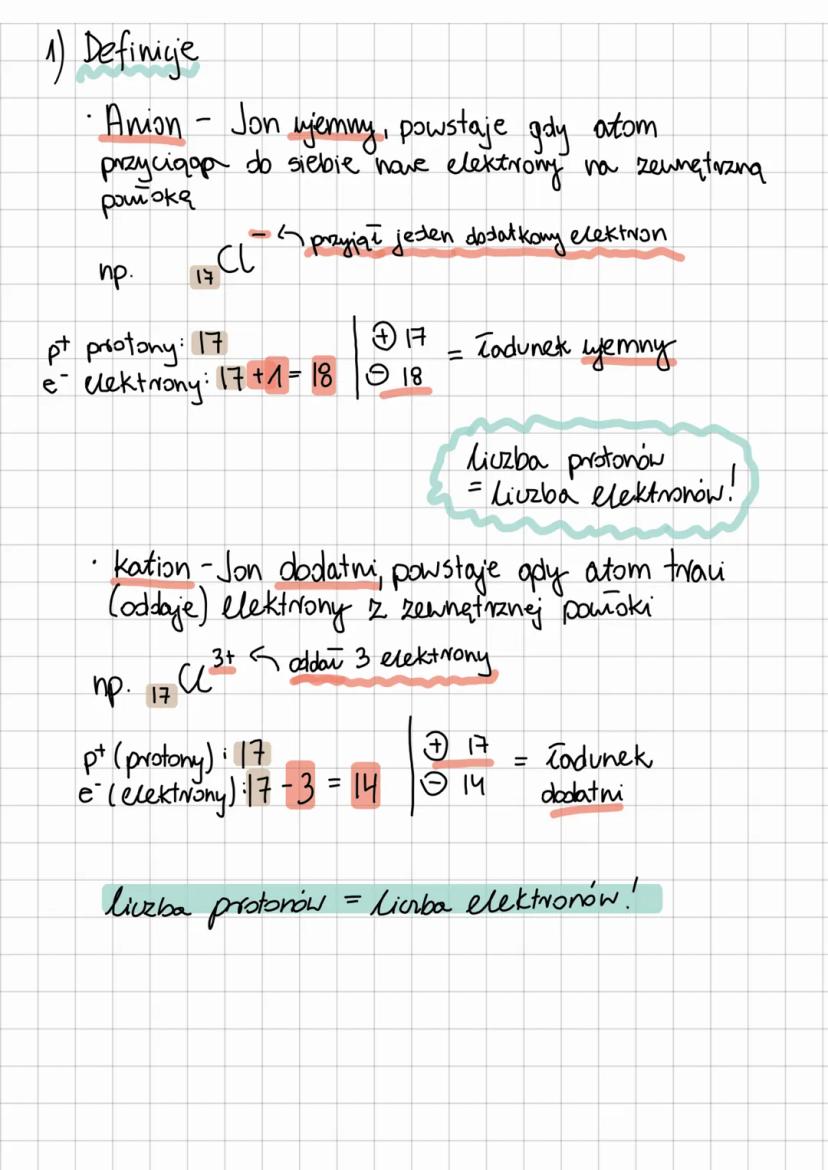 1) Definicje
· Anion – Jon ujemny, powstaje gdy atom
przyciąga do siebie nowe elektrony na zewnętrzną
powłokę
np. ₁₇Cl⁻ ↰ przyjął jeden dodatkowy elektron
p⁺ protony: 17 | ⊕ 17
e⁻ elektrony: 17 +1 = 18 | ⊖ 18 = ładunek ujemny
liczba protonów
= liczba elektronów!
· Kation – Jon dodatni, powstaje gdy atom traci
(oddaje) elektrony z zewnętrznej powłoki
np. ₁₇Cl³⁺ ↰ oddał 3 elektrony
p⁺ (protony): 17 | ⊕ 17 = ładunek
e⁻ (elektrony): 17 - 3 = 14 | ⊖ 14 dodatni
liczba protonów = liczba elektronów!